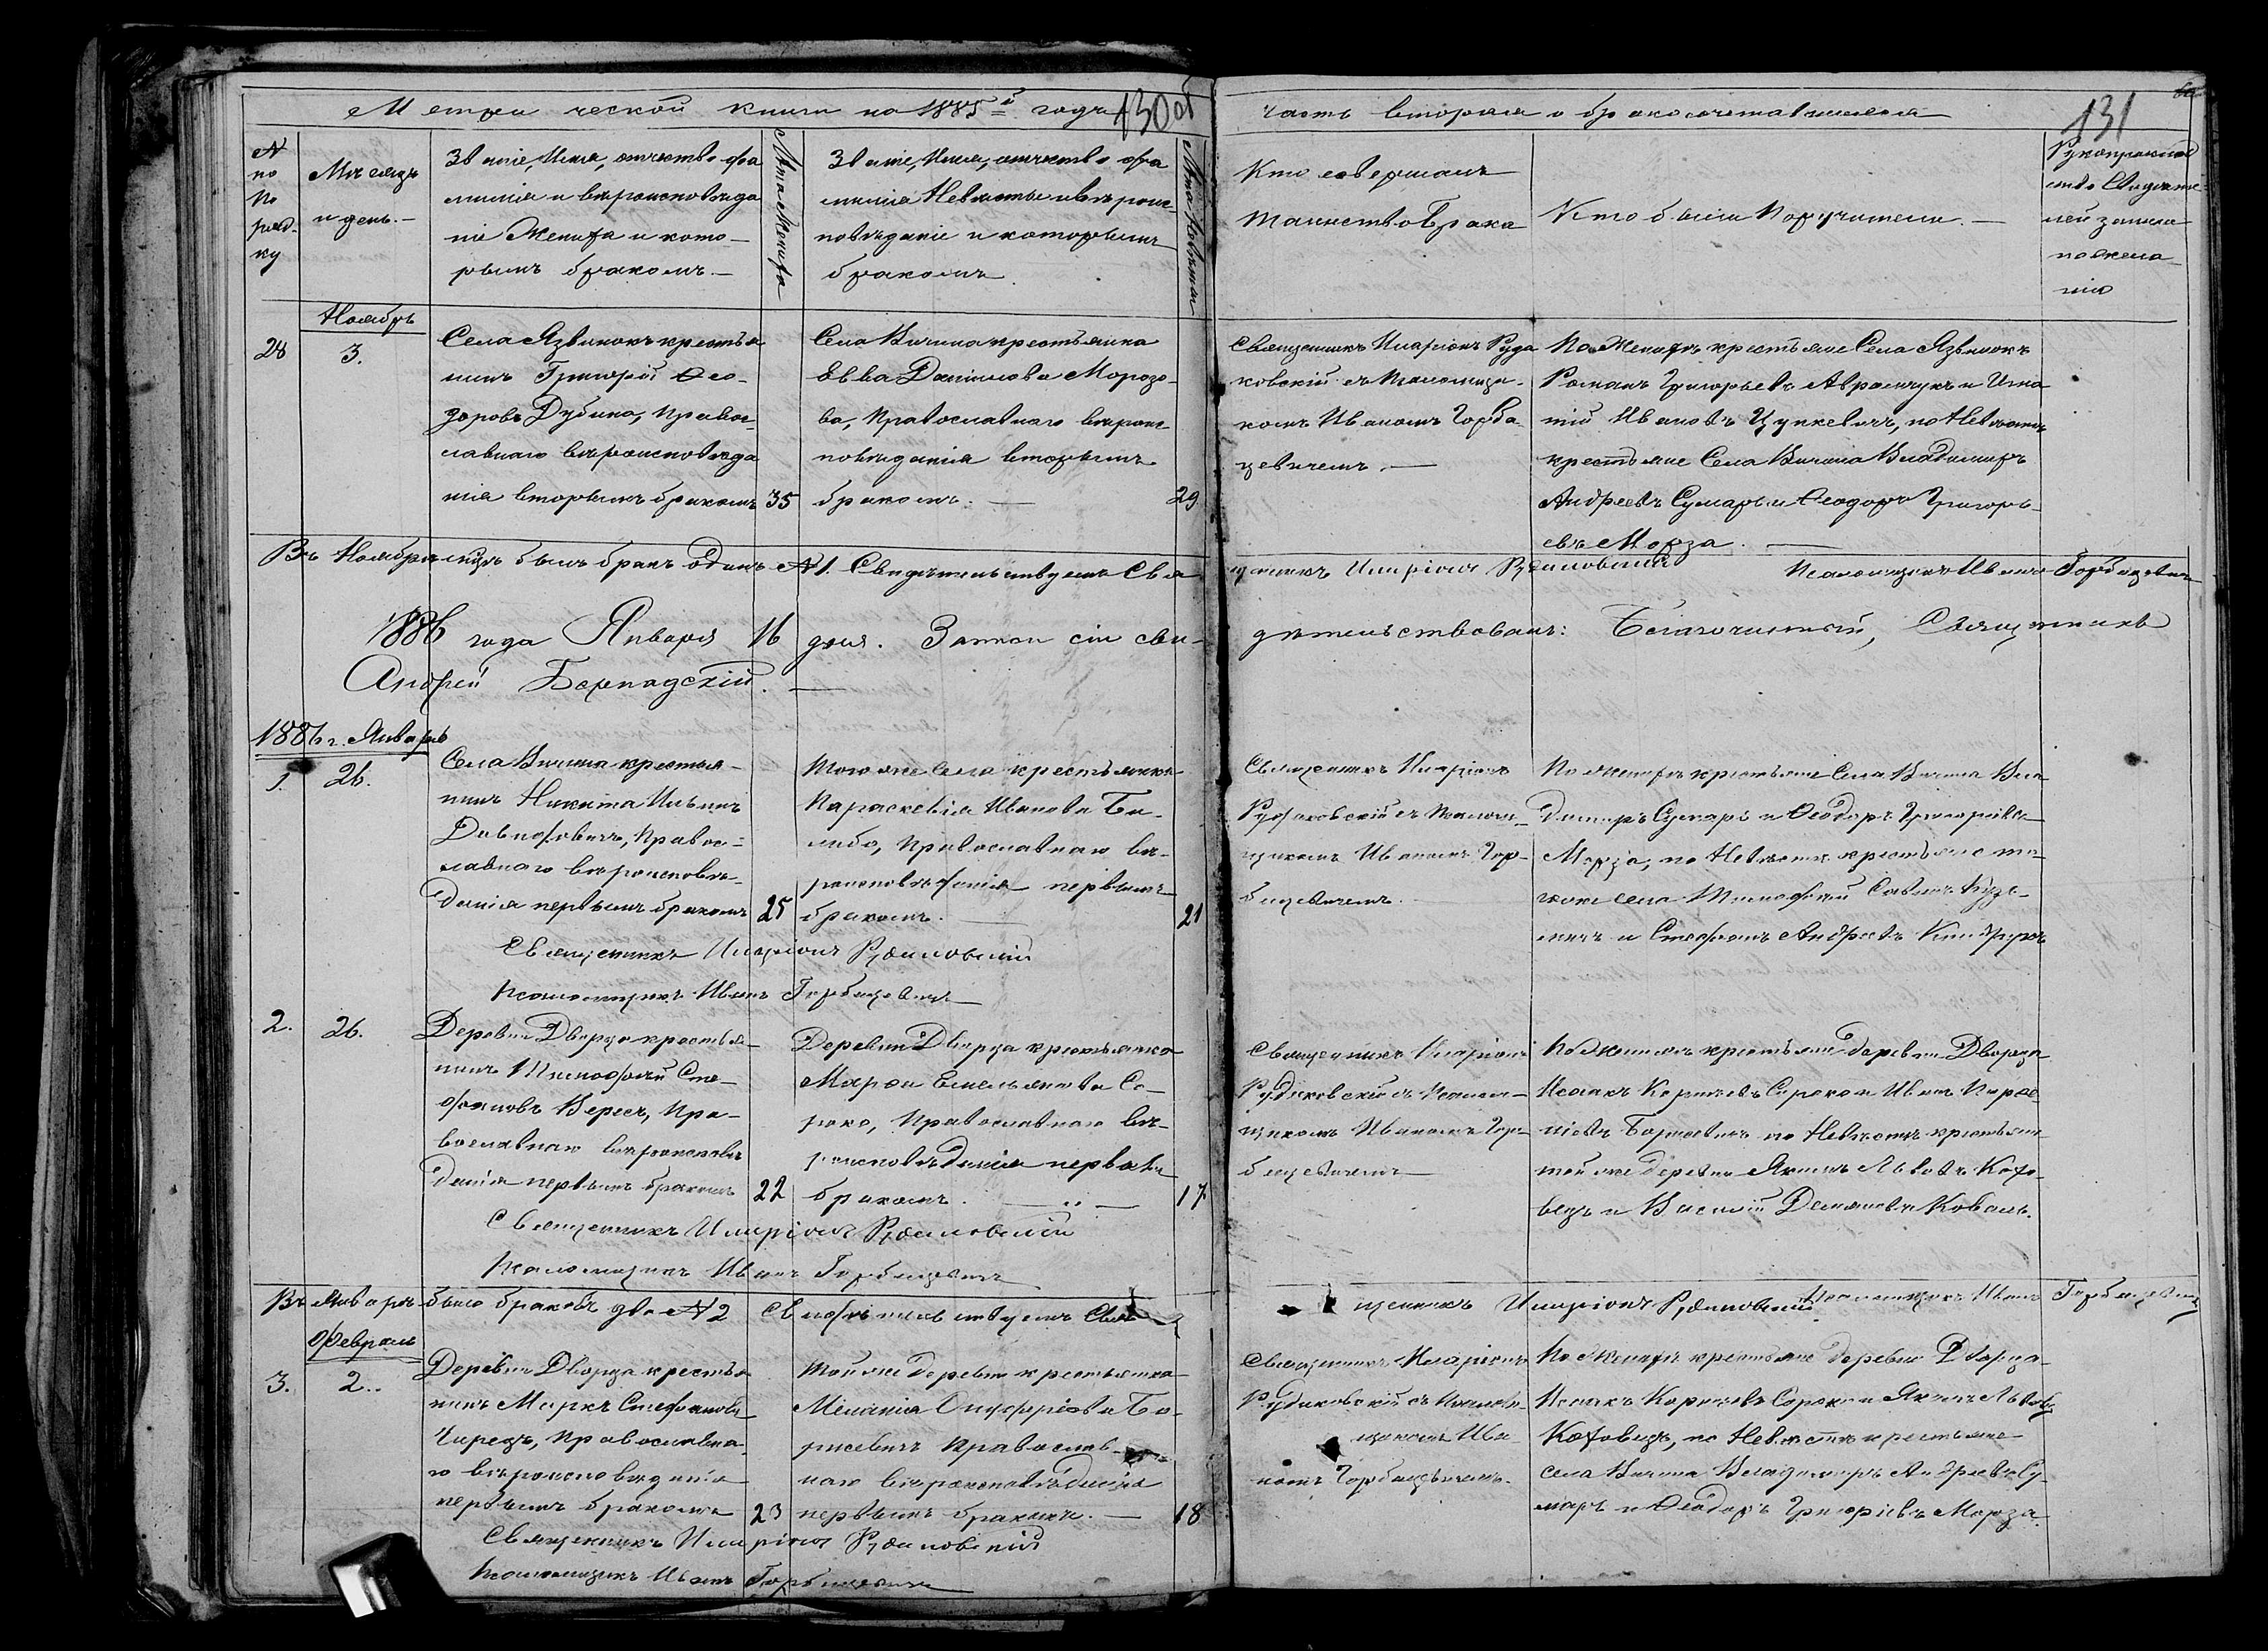 Метрической книги на 1885й годъ
130 об
часть вторая о бракосочетавшихся
131
N по поряд-ку
Мѣсяцъ и день.—
Званіе, Имя, отчество фа
милія и вѣроисповѣда
ніе Жениха и кото—
рымъ бракомъ.—
Лѣта Жениха
Званіе, Имя, отчество фа
милія Невѣсты и вѣроис-
повѣданіе и которымъ
бракомъ.
Лѣта Невѣсты
Кто совершалъ
таинство Брака
Кто были Поручители.—
Ноябрь
28
3.
Села Язвинокъ крестья
нинъ Григорій Ѳео-
доровъ Дубина, Правос-
лавнаго вѣроисповѣда
нія вторымъ бракомъ
35
Села Вичина крестьянка
Евва Даніилова Морозо-
ва, Православнаго вѣроис-
повѣданія вторымъ
бракомъ.—
29
Священникъ Иларіонъ Руда
ковскій съ Псаломщи-
комъ Иваномъ Горба-
цевичемъ.—
По Женихѣ крестьяне Села Язвинокъ
Романъ Григорьевъ Аврамчукъ и Игна
тій Ивановъ Цупкевичъ, по Невѣстѣ
крестьяне Села Вичина Владимиръ
Андреевъ Сумаръ и Ѳеодоръ Григорь-
евъ Морза.—
Въ Ноябрѣ мцѣ былъ бракъ одинъ N 1. Свидѣтельствуемъ Свя
щенникъ Иларіонъ Рудаковскій
Псаломщикъ Иванъ Горбацевичъ
1886 года Января 16 дня. Записи сіи сви-
дѣтельствовалъ: Благочинный, Священникъ
Андрей Бернадскій.—
1886 г. Январь
1.
26.
Села Вичина крестья-
нинъ Никита Ильинъ
Православнаго вѣроисповѣ-
данія первымъ бракомъ
25
Того же села крестьянка
Параскевія Иванова Би-
либо, Православнаго вѣ-
роисповѣданія первымъ
бракомъ.
21
Священникъ Иларіонъ
Рудаковскій съ Псалом-
щикомъ Иваномъ Гор-
бацевичемъ.
По женихѣ крестьяне Села Вичина Вла-
димиръ Сумаръ и Ѳеодоръ Григоріевъ
Морза, по Невѣстѣ крестьяне то-
гоже села Тимофей Савинъ
и Стефанъ Андреевъ
Священникъ Иларіонъ Рудаковскій
Псаломщикъ Иванъ Горбацевичъ
2.
26.
Деревни Дворца крестья-
нинъ Тимофей Сте-
фановъ Вересъ, Пра-
вославнаго вѣроисповѣ
данія первымъ бракомъ
22
Деревни Дворца крестьянка
Марѳа Емельянова Со-
роко, Православнаго вѣ-
роисповѣданія первымъ
бракомъ.
17
Священникъ Иларіонъ
Рудаковскій съ Псалом-
щикомъ Иваномъ Гор-
бацевичемъ
По Женихѣ крестьяне деревни Дворца
Исаакъ Корнѣевъ Сороко и Иванъ
Борисевичъ по Невѣстѣ крестьяне
той же деревни Якимъ Львовъ Кохо-
вецъ и Василій Демяновъ Коваль.
Священникъ Иларіонъ Рудаковскій
Псаломщикъ Иванъ Горбацевичъ
Въ Январѣ было браковъ два N 2 Свидѣтельствуемъ Свя
щенникъ Иларіонъ Рудаковскій
Псаломщикъ Иванъ Горбацевичъ
Февраль
3.
2.
Деревни Дворца крестья
нинъ Маркъ Стефановъ
Чирецъ, Православна-
го вѣроисповѣданія
первымъ бракомъ
23
Той же деревни крестьянка
Меланія Онуфріева Бо-
рисевичъ Православ-
наго вѣроисповѣданія
первымъ бракомъ.—
18
Священникъ Иларіонъ
Рудаковскій съ Псалом-
щикомъ Ива-
номъ Горбацевичемъ.
По Женихѣ крестьяне деревни Дворца
Исаакъ Корнѣевъ Сороко и Якимъ Львовъ
Коховецъ, по Невѣстѣ крестьяне
села Вичина Владимиръ Андреевъ Су-
маръ и Ѳеодоръ Григоріевъ Морза.
Священникъ Иларіонъ Рудаковскій
Псаломщикъ Иванъ Горбацевичъ